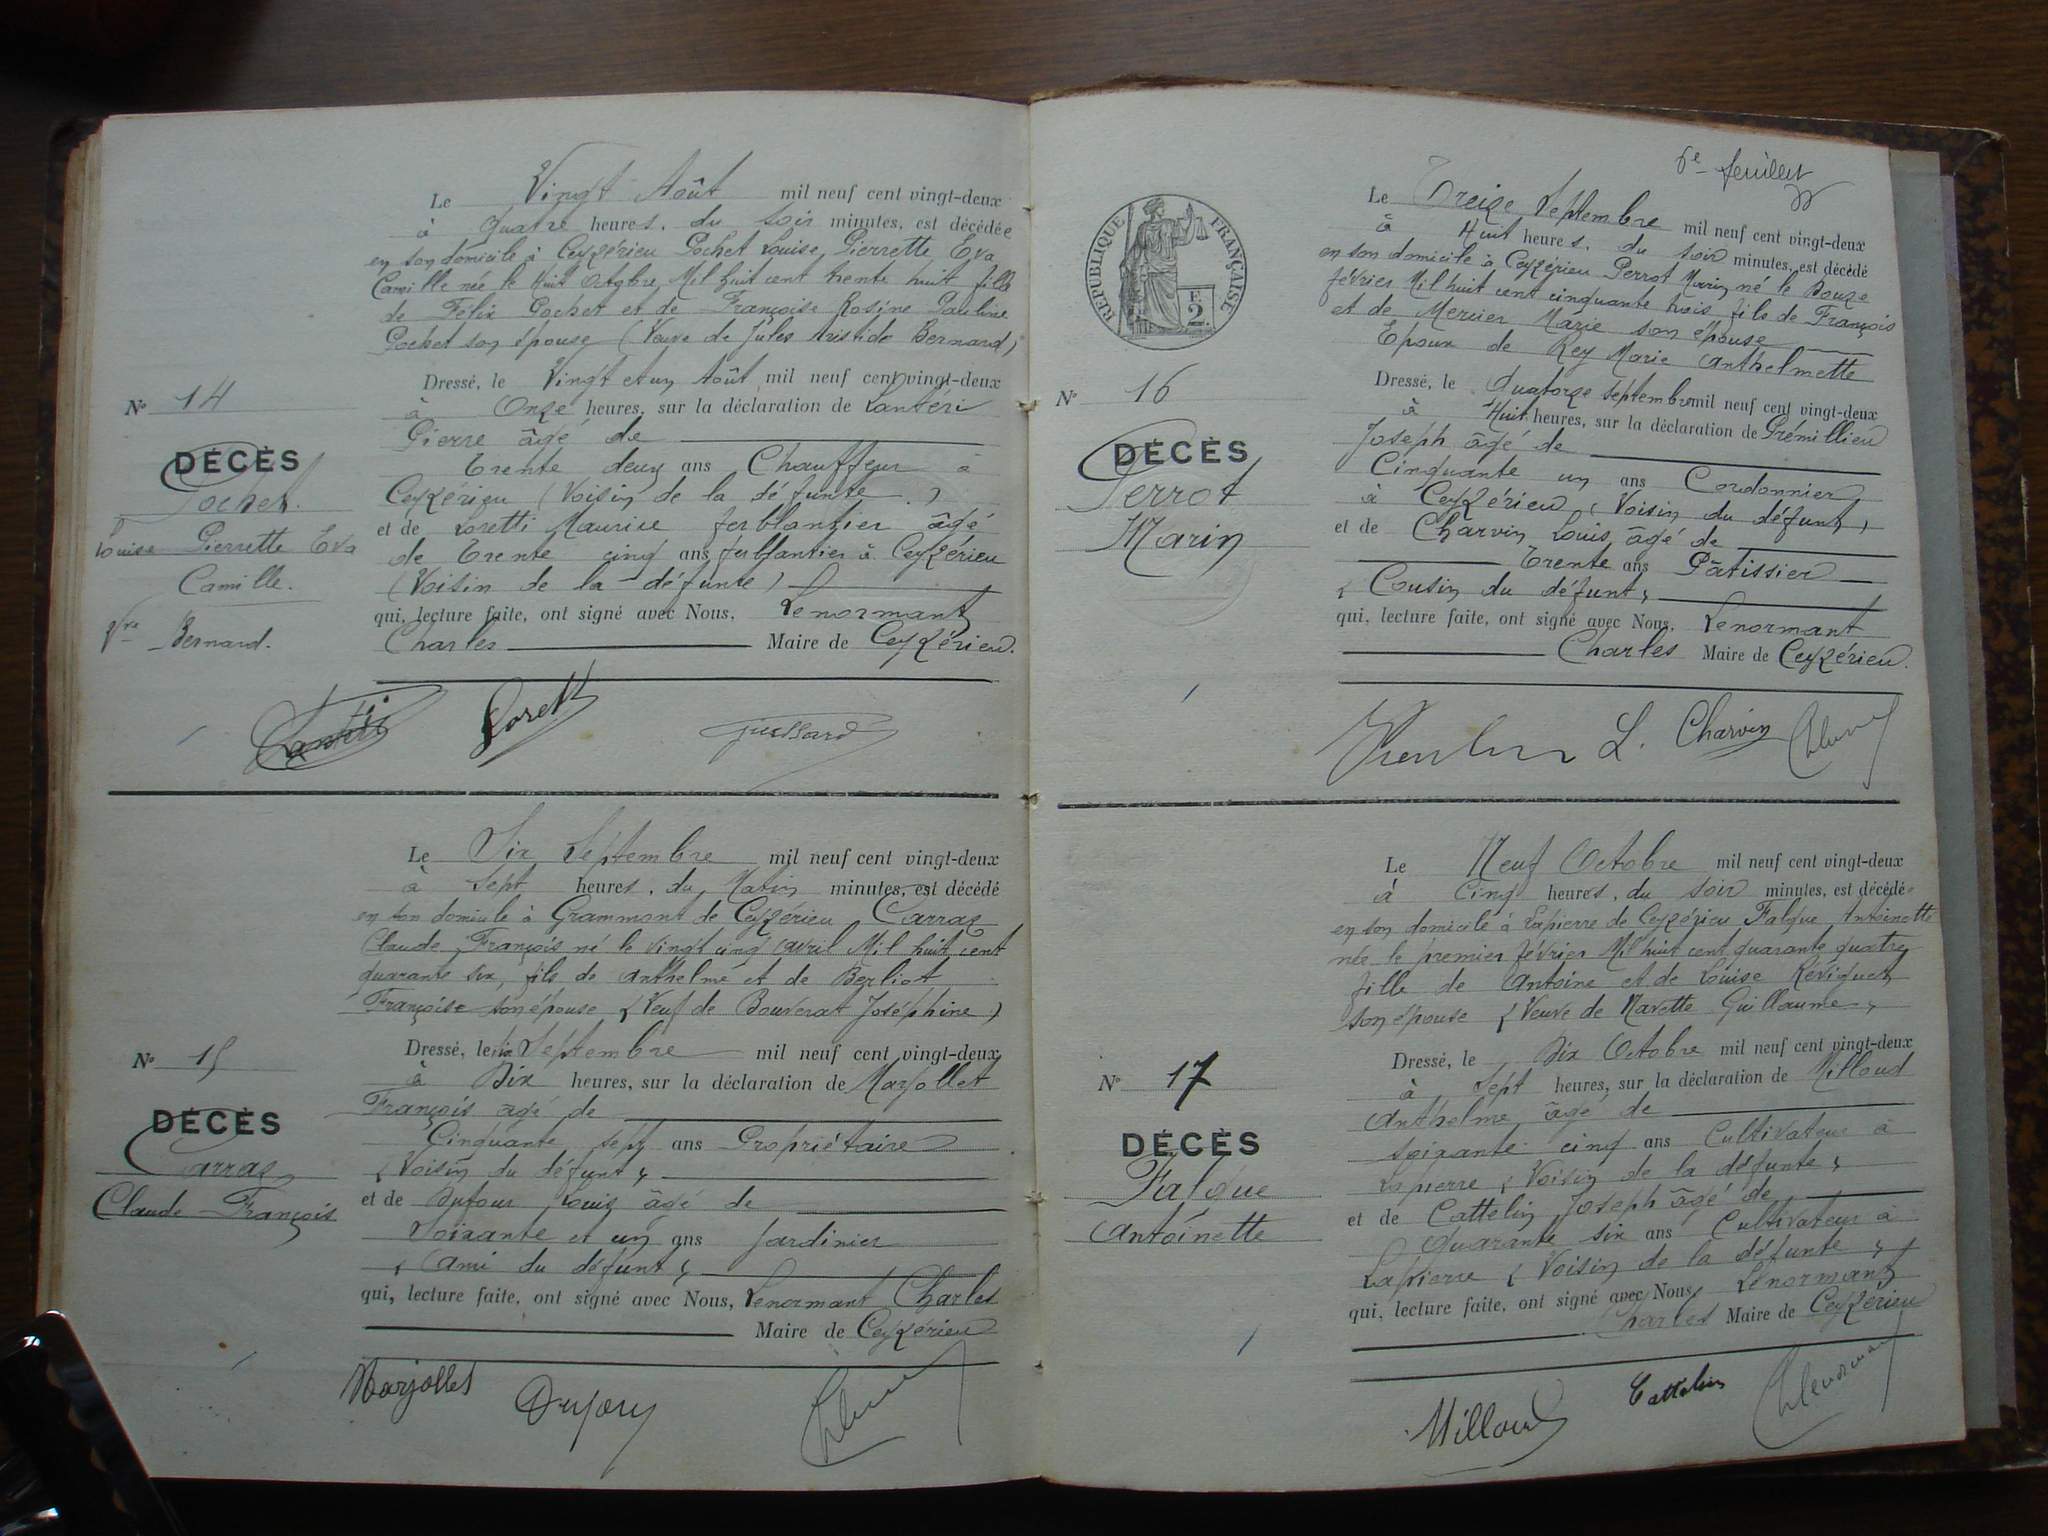 Le Vingt Août mil neuf cent vingt-deux
à quatre heures, du soir minutes, est décédée
en son domicile à Ceyzérieu Pochet Louise Pierrette Eva
Camille née le Huit Octobre Mil huit cent trente huit fille
de Félix Pochet et de Françoise Rosine Pauline
Pochet son épouse (Veuve de Jules Aristide Bernard)
Dressé, le Vingt et un Août mil neuf cent vingt-deux
à Onze heures, sur la déclaration de Lantéri
Pierre âgé de
Trente deux ans Chauffeur à
Ceyzérieu (Voisin de la défunte.)
et de Loretti Maurice ferblantier âgé
de Trente cinq ans ferblantier à Ceyzérieu
(Voisin de la défunte)
qui, lecture faite, ont signé avec Nous, Lenormant
Charles Maire de Ceyzérieu.
N° 14
DÉCÈS
Pochet.
Louise Pierrette Eva
Camille.
Vve Bernard.
Lantéri Loretti
Le Six Septembre mil neuf cent vingt-deux
à Sept heures, du Matin minutes, est décédé
en son domicile à Grammont de Ceyzérieu Carraz
Claude François né le vingt cinq avril Mil huit cent
quarante six, fils de Anthelme et de Berliot
Françoise son épouse (Veuf de Bouverat Joséphine)
Dressé, le six Septembre mil neuf cent vingt-deux
à Dix heures, sur la déclaration de Marjollet
François âgé de
Cinquante sept ans Propriétaire
(Voisin du défunt)
et de Dufour Louis âgé de
Soixante et un ans Jardinier
(Ami du défunt)
qui, lecture faite, ont signé avec Nous, Lenormant Charles
Maire de Ceyzérieu
N° 15
DÉCÈS
Carraz
Claude François
Marjollet Dufour
6e feuillet
RÉPUBLIQUE FRANÇAISE
F.
2
Le Treize Septembre mil neuf cent vingt-deux
à Huit heures, du soir minutes, est décédé
en son domicile à Ceyzérieu Perrot Marin né le Douze
février Mil huit cent cinquante trois fils de François
et de Mercier Marie son épouse
Epoux de Rey Marie Anthelmette
Dressé, le Quatorze septembre mil neuf cent vingt-deux
à Huit heures, sur la déclaration de Prémillieu
Joseph âgé de
Cinquante un ans Cordonnier
à Ceyzérieu (Voisin du défunt)
et de Charvin Louis âgé de
Trente ans Pâtissier
(Cousin du défunt)
qui, lecture faite, ont signé avec Nous, Lenormant
Charles Maire de Ceyzérieu.
N° 16
DÉCÈS
Perrot
Marin
L. Charvin
Le Neuf Octobre mil neuf cent vingt-deux
à Cinq heures, du soir minutes, est décédée
en son domicile à Lapierre de Ceyzérieu Falque Antoinette
née le premier février Mil huit cent quarante quatre
fille de Antoine et de Louise
son épouse (Veuve de Navette Guillaume)
Dressé, le Dix Octobre mil neuf cent vingt-deux
à Sept heures, sur la déclaration de Milloud
Anthelme âgé de
soixante cinq ans Cultivateur à
Lapierre (Voisin de la défunte)
et de Cattelin Joseph âgé de
Quarante six ans Cultivateur à
Lapierre (Voisin de la défunte)
qui, lecture faite, ont signé avec Nous, Lenormant
Charles Maire de Ceyzérieu
N° 17
DÉCÈS
Falque
Antoinette
Milloud Cattelin Lenormant